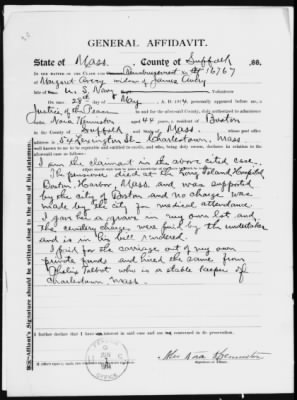 GENERAL AFFIDAVIT.
State of Mass. County of Suffolk, ss.
IN THE MATTER OF THE CLAIM FOR Reimbursement 16767
of Margaret Avery widow of James Avery
late of U. S. Navy Volunteers
ON THIS 28th day of May, A. D. 1914, personally appeared before me, a
Justice of the Peace in and for the aforesaid County, duly authorized to administer oaths,
Nora aged 44 years, a resident of Boston
in the County of Suffolk and State of Mass.
whose post-office
address is 54 Lexington St. Charlestown, Mass.
and who, being duly sworn, declares in relation to the aforesaid case as follows:
I am the claimant in the above cited case.
The pensioner died at the Long Island Hospital
Boston Harbor, Mass and was supported
by the city of Boston and no charge was
made by the city for medical attendance.
I gave her a grave in my own lot and
the cemetery charge were paid by the undertaker
and is in his bill rendered.
I paid for the carriage out of my own
private funds and hired the same from
Talbot who is a stable keeper of
Charlestown Mass.
I further declare that I have no interest in said case and am not concerned in its prosecution.
Mrs Nora
Affiant's Signature should be written at the end of his statement.
OFFICE
1914